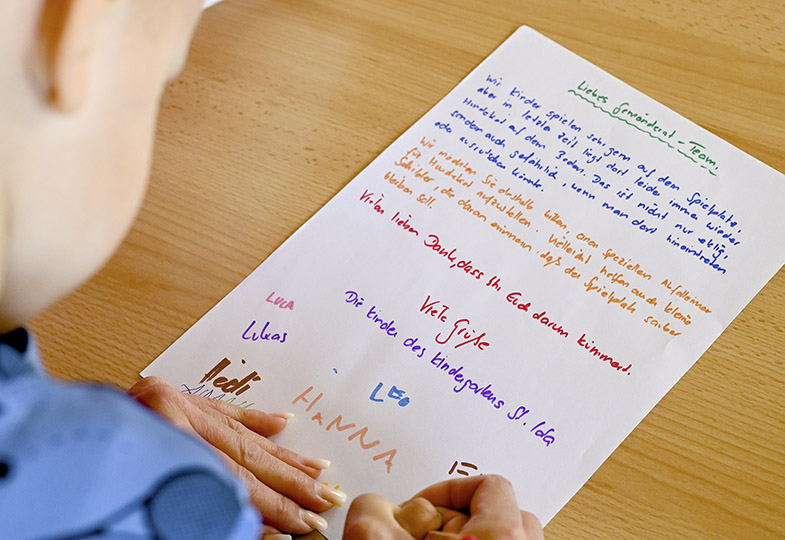 Liebes Gemeinderat-Team,
Wir Kinder spielen sehr gern auf dem Spielplatz,
aber in letzter Zeit liegt dort leider immer wieder
Hundekot auf dem Boden. Das ist nicht nur eklig,
sondern auch gefährlich, wenn man dort hineintreten
oder ausrutschen könnte.
Wir möchten Sie deshalb bitten, einen speziellen Abfalleimer
für Hundekot aufzustellen. Vielleicht helfen auch kleine
Schilder, die daran erinnern, daß der Spielplatz sauber
bleiben soll.
Vielen lieben Dank, dass Ihr Euch darum kümmert.
Viele Grüße
Die Kinder des Kindergartens St. Ida
LUCA
Lukas
Hedi
LEO
HANNA